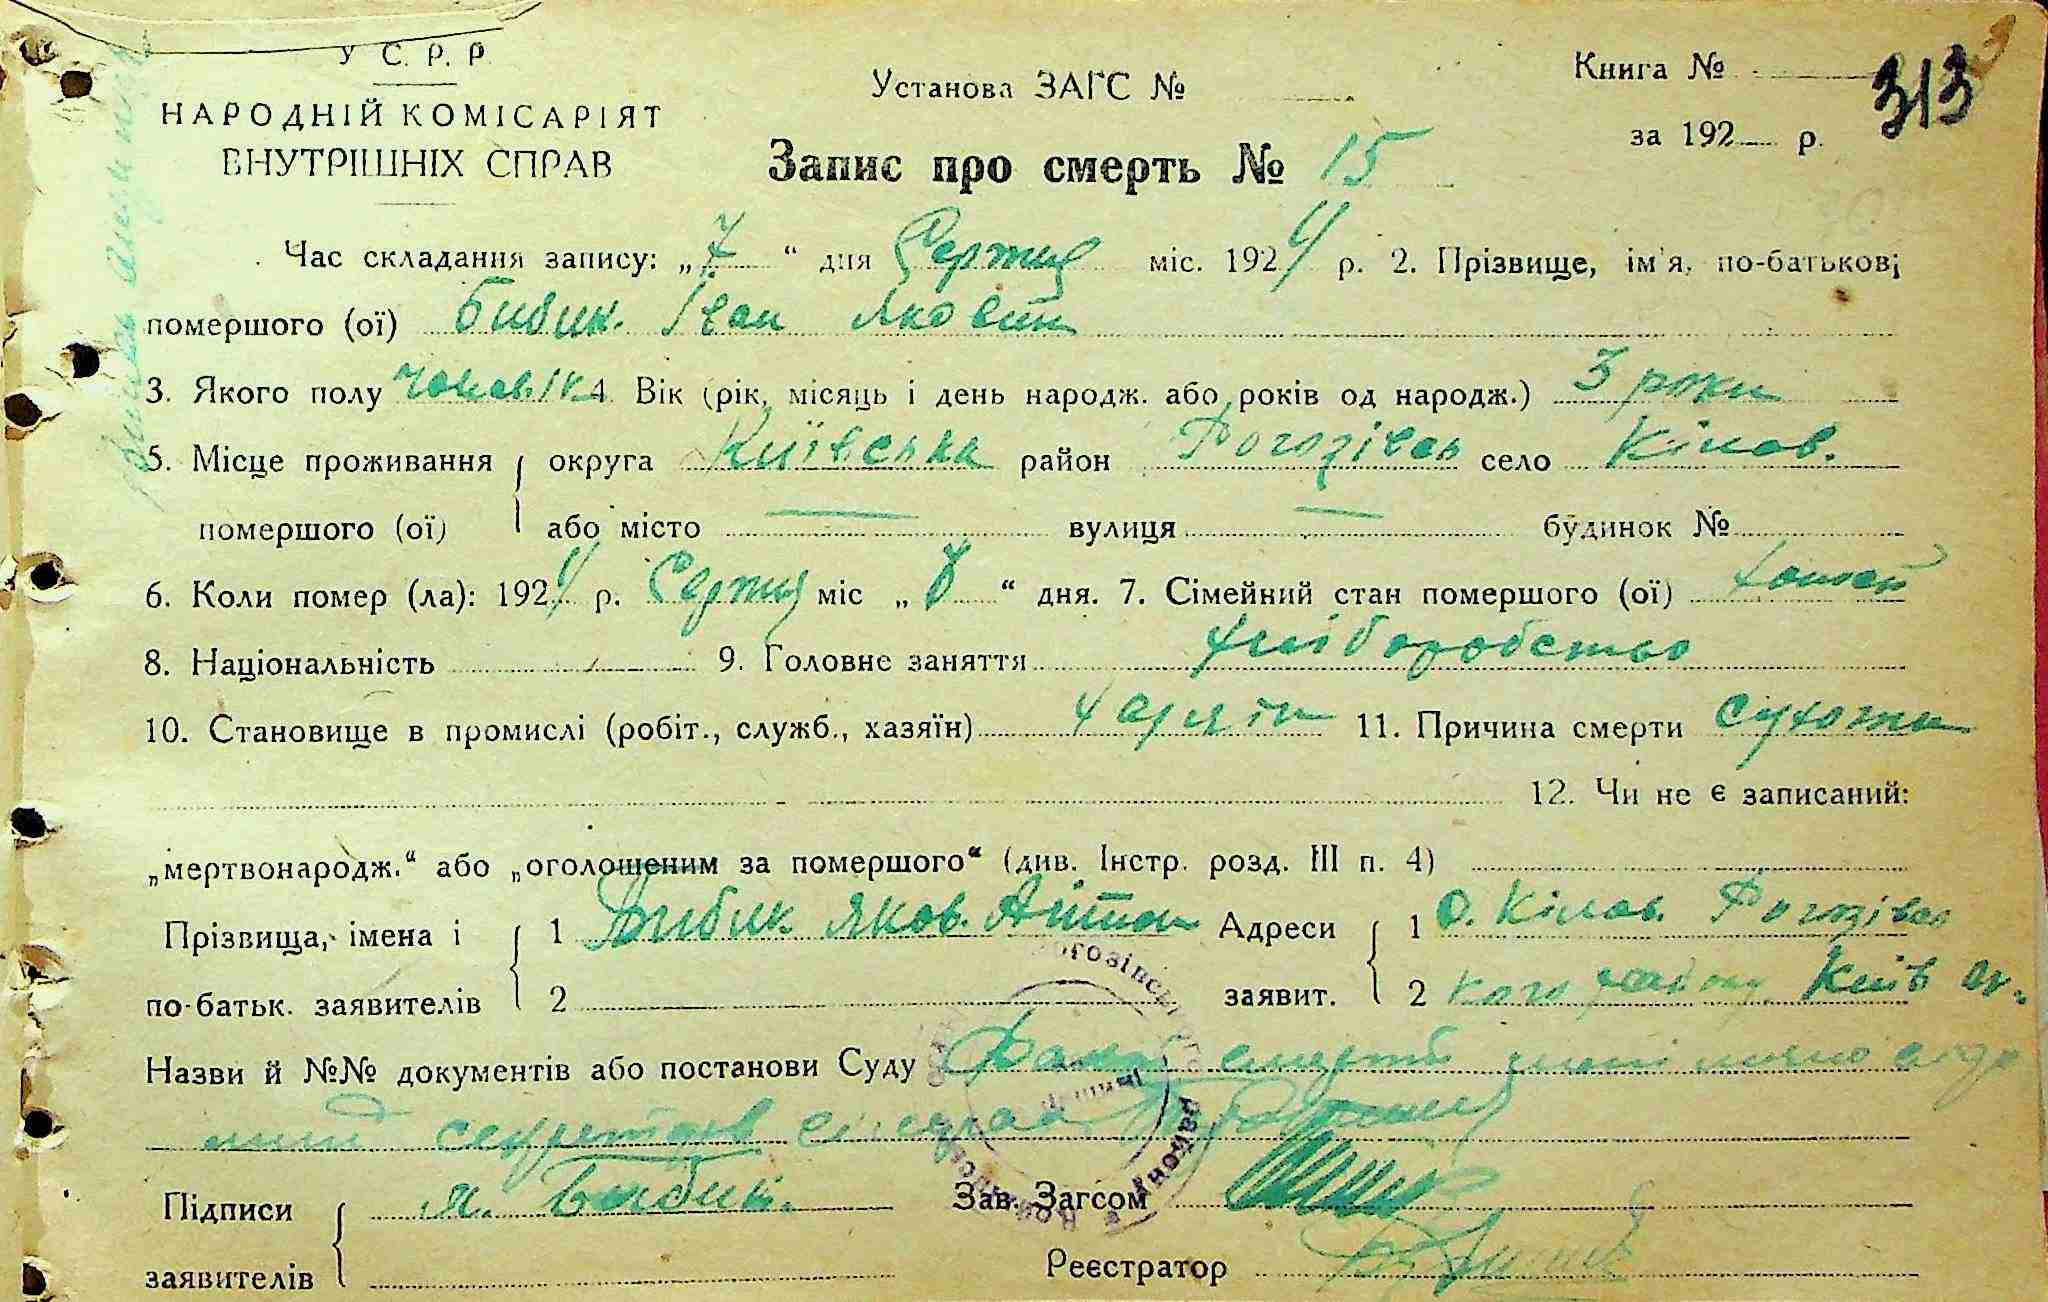 У С. Р. Р.
НАРОДНІЙ КОМІСАРІЯТ
ВНУТРІШНІХ СПРАВ
Установа ЗАГС №
Книга №
313
за 192 р.
Запис про смерть № 15
Час складання запису: „7“ дня Серпня міс. 1924 р. 2. Прізвище, ім'я, по-батькові
помершого (ої) Бибик. Іван Якович
3. Якого полу чоловік 4 Вік (рік, місяць і день народж. або років од народж.) 3 роки
5. Місце проживання округа Київська район Рогозівсь село Кілов.
помершого (ої) або місто — вулиця — будинок №
6. Коли помер (ла): 1924 р. Серпня міс „ “ дня. 7. Сімейний стан помершого (ої)
8. Національність 9. Головне заняття хліборобство
10. Становище в промислі (робіт., служб., хазяїн) 11. Причина смерти сухоти
12. Чи не є записаний:
„мертвонародж.“ або „оголошеним за помершого“ (див. Інстр. розд. III п. 4)
Прізвища, імена і 1 Бибик Яков. Антон Адреси 1 с. Кілов. Рогозівсь
по-батьк. заявителів 2 заявит. 2 кого району Київ ок.
Назви й №№ документів або постанови Суду смерти
секретарь сільрад
Підписи Я. Бибик. Зав. Загсом
заявителів Реєстратор